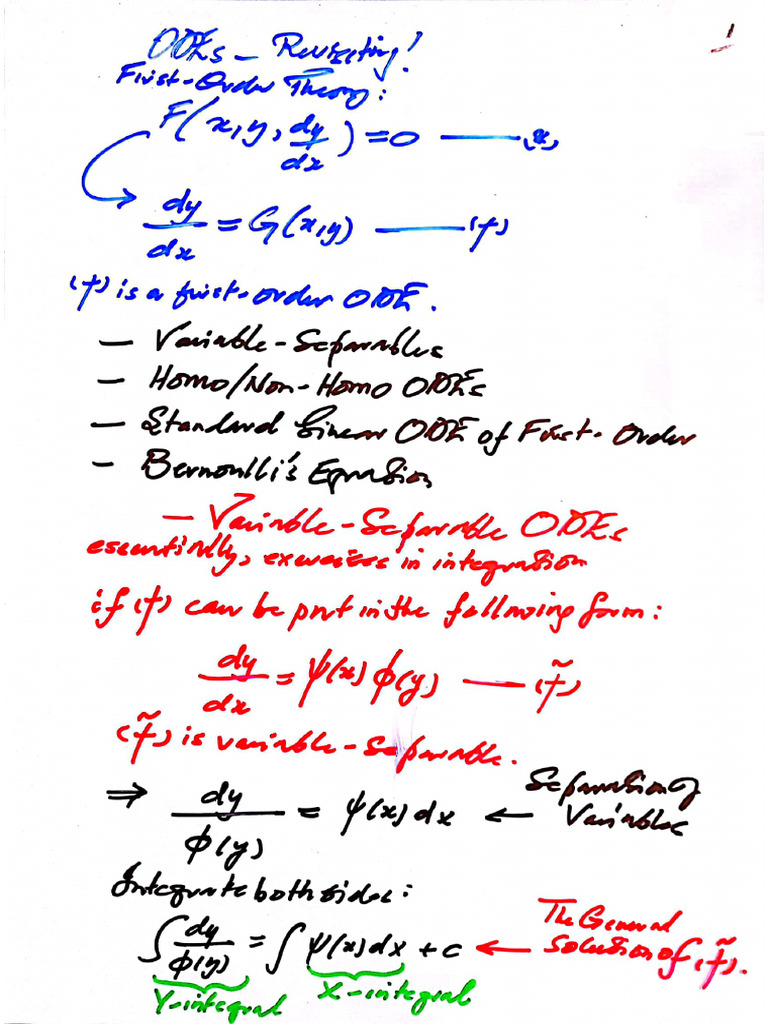 1
ODEs – Revisiting!
First-Order Theory:
F(x,y,dy/dx)=0 —(*)
dy/dx = G(x,y) —(†)
(†) is a first-order ODE.
– Variable-Separables
– Homo/Non-Homo ODEs
– Standard Linear ODE of First-Order
– Bernoulli's Equation
– Variable-Separable ODEs
essentially, exercises in integration
if (†) can be put in the following form:
dy/dx = ψ(x) ϕ(y) —(†̃)
(†̃) is variable-separable.
⇒ dy/ϕ(y) = ψ(x)dx ← Separation of
Variables
Integrate both sides:
∫dy/ϕ(y) = ∫ψ(x)dx + c ← The General
Solution of (†̃).
Y-integral X-integral